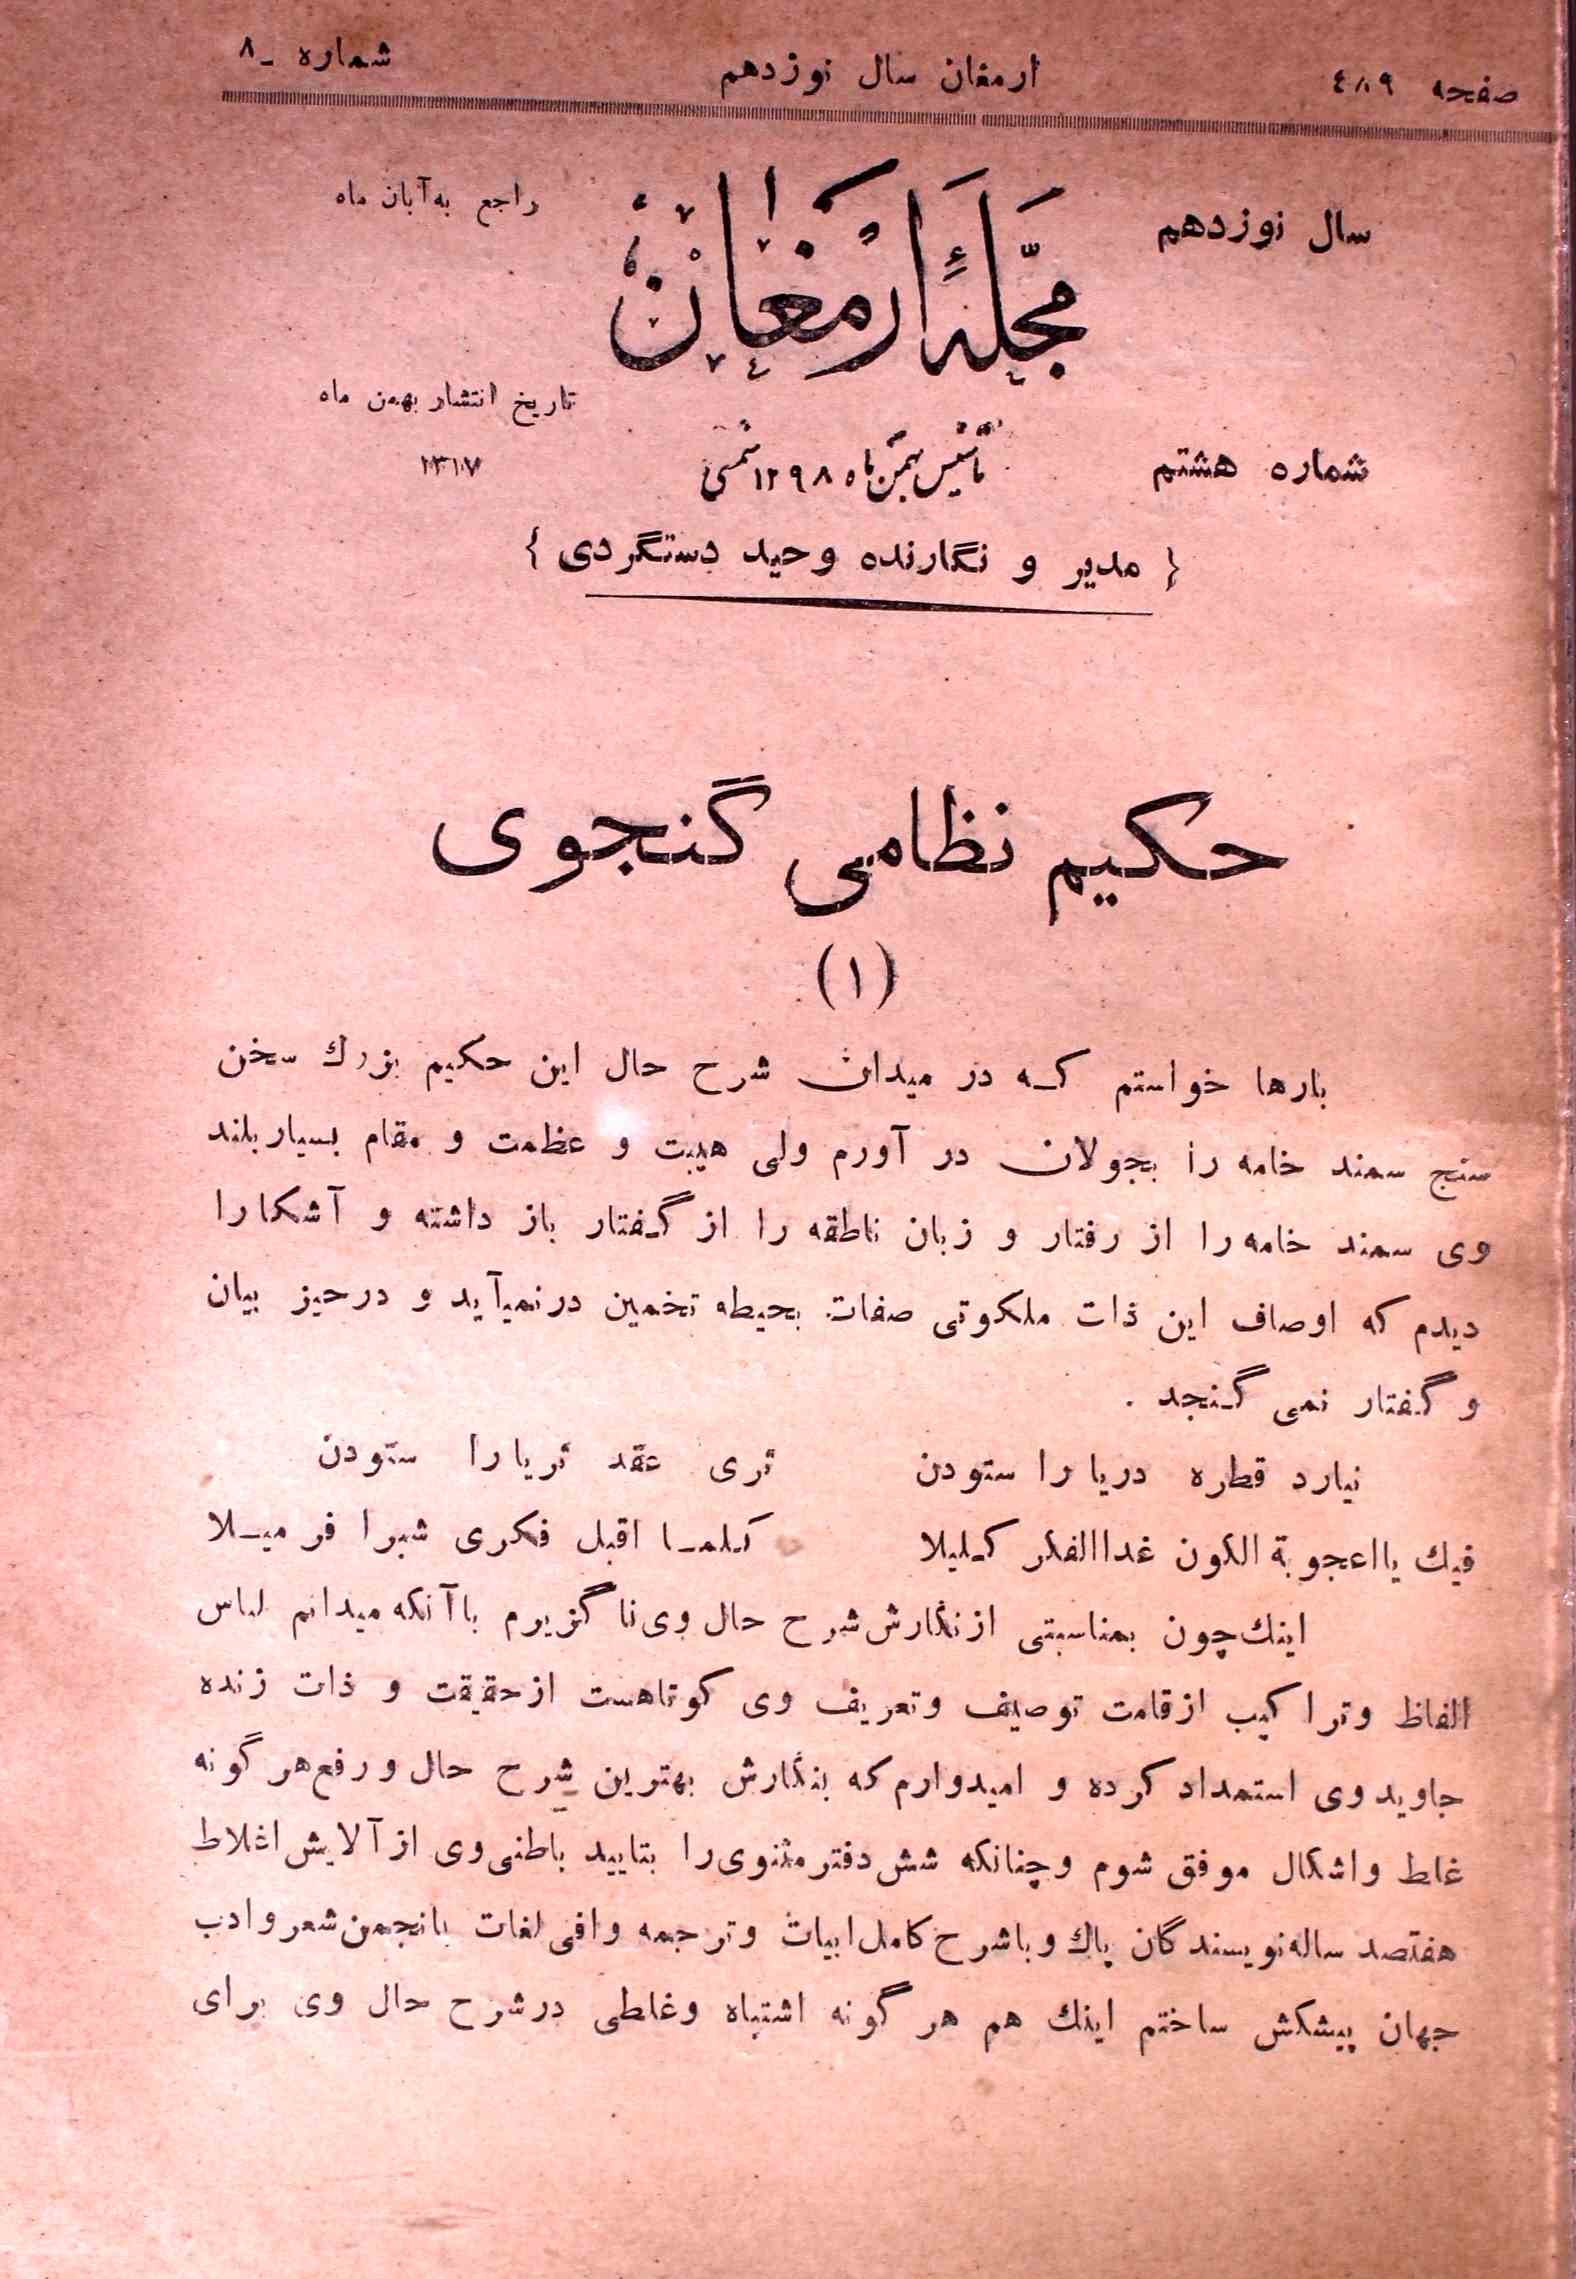 صفحه ٤٨٩ ارمغان سال نوزدهم شماره ـ ٨
سال نوزدهم
مجلهٔ ارمغان
راجع به آبان ماه
شماره هشتم
تأسیس بهمن ماه ١٢٩٨ شمسی
تاریخ انتشار بهمن ماه
١٣١٧
{ مدیر و نگارنده وحید دستگردی }
حکیم نظامی گنجوی
(١)
بارها خواستم که در میدان شرح حال این حکیم بزرك سخن
سنج سمند خامه را بجولان در آورم ولی هیبت و عظمت و مقام بسیار بلند
وی سمند خامه را از رفتار و زبان ناطقه را از گفتار باز داشته و آشکارا
دیدم که اوصاف این ذات ملکوتی صفات بحیطه تخمین درنمیآید و درحیز بیان
و گفتار نمی گنجد .
نیارد قطره دریا را ستودن ثری عقد ثریا را ستودن
فیك یا اعجوبة الکون غدا الفکر کلیلا کلما اقبل فکری شبرا فر میلا
اینك چون بمناسبتی از نگارش شرح حال وی ناگزیرم با آنکه میدانم لباس
الفاظ و تراکیب از قامت توصیف و تعریف وی کوتاهست از حقیقت و ذات زنده
جاوید وی استمداد کرده و امیدوارم که بنگارش بهترین شرح حال و رفع هر گونه
غلط و اشکال موفق شوم و چنانکه شش دفتر مثنوی را بتایید باطنی وی از آلایش اغلاط
هفتصد ساله نویسندگان پاك و با شرح کامل ابیات و ترجمه وافی لغات بانجمن شعر و ادب
جهان پیشکش ساختم اینك هم هر گونه اشتباه و غلطی در شرح حال وی برای